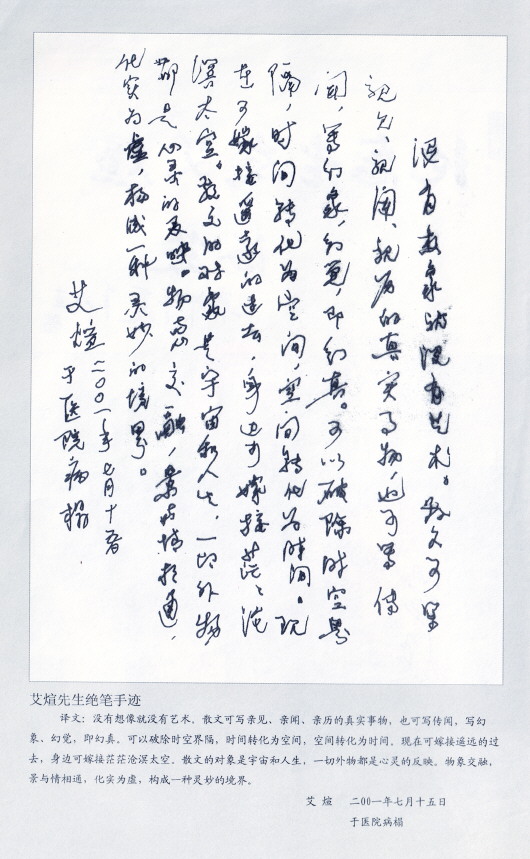 没有想象就没有艺术。散文可写
亲见、亲闻、亲历的真实事物,也可写传
闻,写幻象,幻觉,即幻真。可以破除时空界
隔,时间转化为空间,空间转化为时间。现
在可嫁接遥远的过去,身边可嫁接茫茫沧
溟太空。散文的对象是宇宙和人生,一切外物
都是心灵的反映。物与心交融,景与情相通,
化实为虚,构成一种灵妙的境界。
艾煊 二〇〇一年七月十五日
于医院病榻
艾煊先生绝笔手迹
译文:没有想像就没有艺术。散文可写亲见、亲闻、亲历的真实事物,也可写传闻,写幻
象、幻觉,即幻真。可以破除时空界隔,时间转化为空间,空间转化为时间。现在可嫁接遥远的过
去,身边可嫁接茫茫沧溟太空。散文的对象是宇宙和人生,一切外物都是心灵的反映。物象交融,
景与情相通,化实为虚,构成一种灵妙的境界。
艾 煊 二00一年七月十五日
于医院病榻